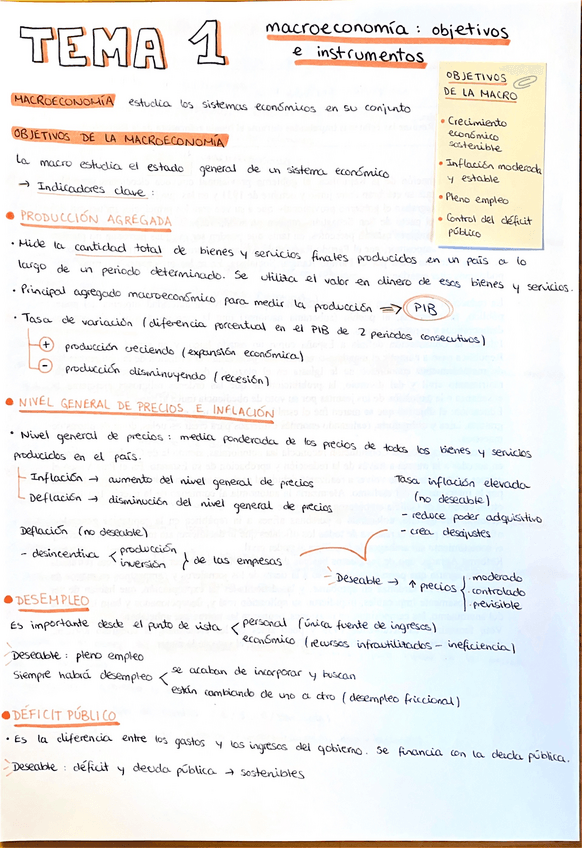 TEMA 1
macroeconomía : objetivos
e instrumentos
OBJETIVOS
DE LA MACRO
• Crecimiento
económico
sostenible
• Inflación moderada
y estable
• Pleno empleo
• Control del déficit
público
MACROECONOMÍA estudia los sistemas económicos en su conjunto
OBJETIVOS DE LA MACROECONOMÍA
La macro estudia el estado general de un sistema económico
→ Indicadores clave :
• PRODUCCIÓN AGREGADA
• Mide la cantidad total de bienes y servicios finales producidos en un país a lo
largo de un periodo determinado. Se utiliza el valor en dinero de esos bienes y servicios.
• Principal agregado macroeconómico para medir la producción ⇒ PIB
• Tasa de variación (diferencia porcentual en el PIB de 2 periodos consecutivos)
+ producción creciendo (expansión económica)
- producción disminuyendo (recesión)
• NIVEL GENERAL DE PRECIOS E INFLACIÓN
• Nivel general de precios : media ponderada de los precios de todos los bienes y servicios
producidos en el país.
Inflación → aumento del nivel general de precios
Deflación → disminución del nivel general de precios
Tasa inflación elevada
(no deseable)
- reduce poder adquisitivo
- crea desajustes
Deflación (no deseable)
- desincentiva < producción
inversión } de las empresas
Deseable → ↑ precios { · moderado
· controlado
· previsible
• DESEMPLEO
Es importante desde el punto de vista < personal (única fuente de ingresos)
económico (recursos infrautilizados - ineficiencia)
Deseable : pleno empleo
Siempre habrá desempleo < se acaban de incorporar y buscan
están cambiando de uno a otro (desempleo friccional)
• DÉFICIT PÚBLICO
• Es la diferencia entre los gastos y los ingresos del gobierno. Se financia con la deuda pública.
Deseable : déficit y deuda pública → sostenibles